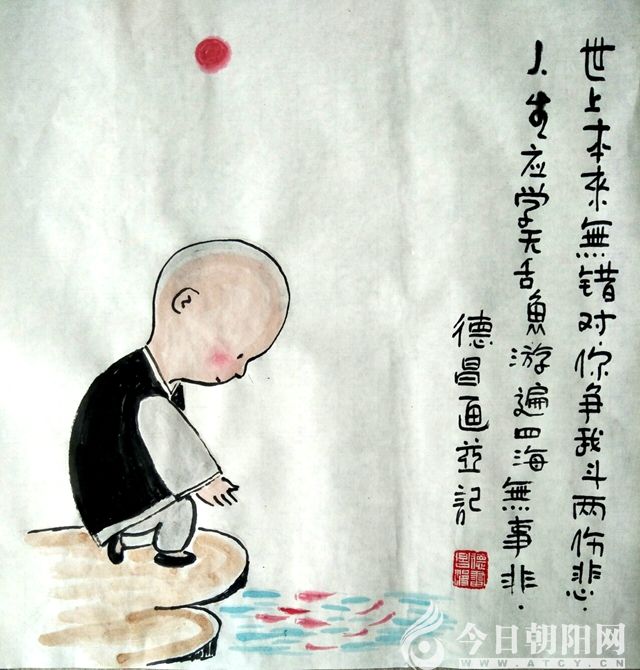 世上本來無错对.你争我斗两伤悲.
人生应学无舌魚游遍四海無事非.
德昌画並記
今日朝阳网
WWW.ACYY.CN